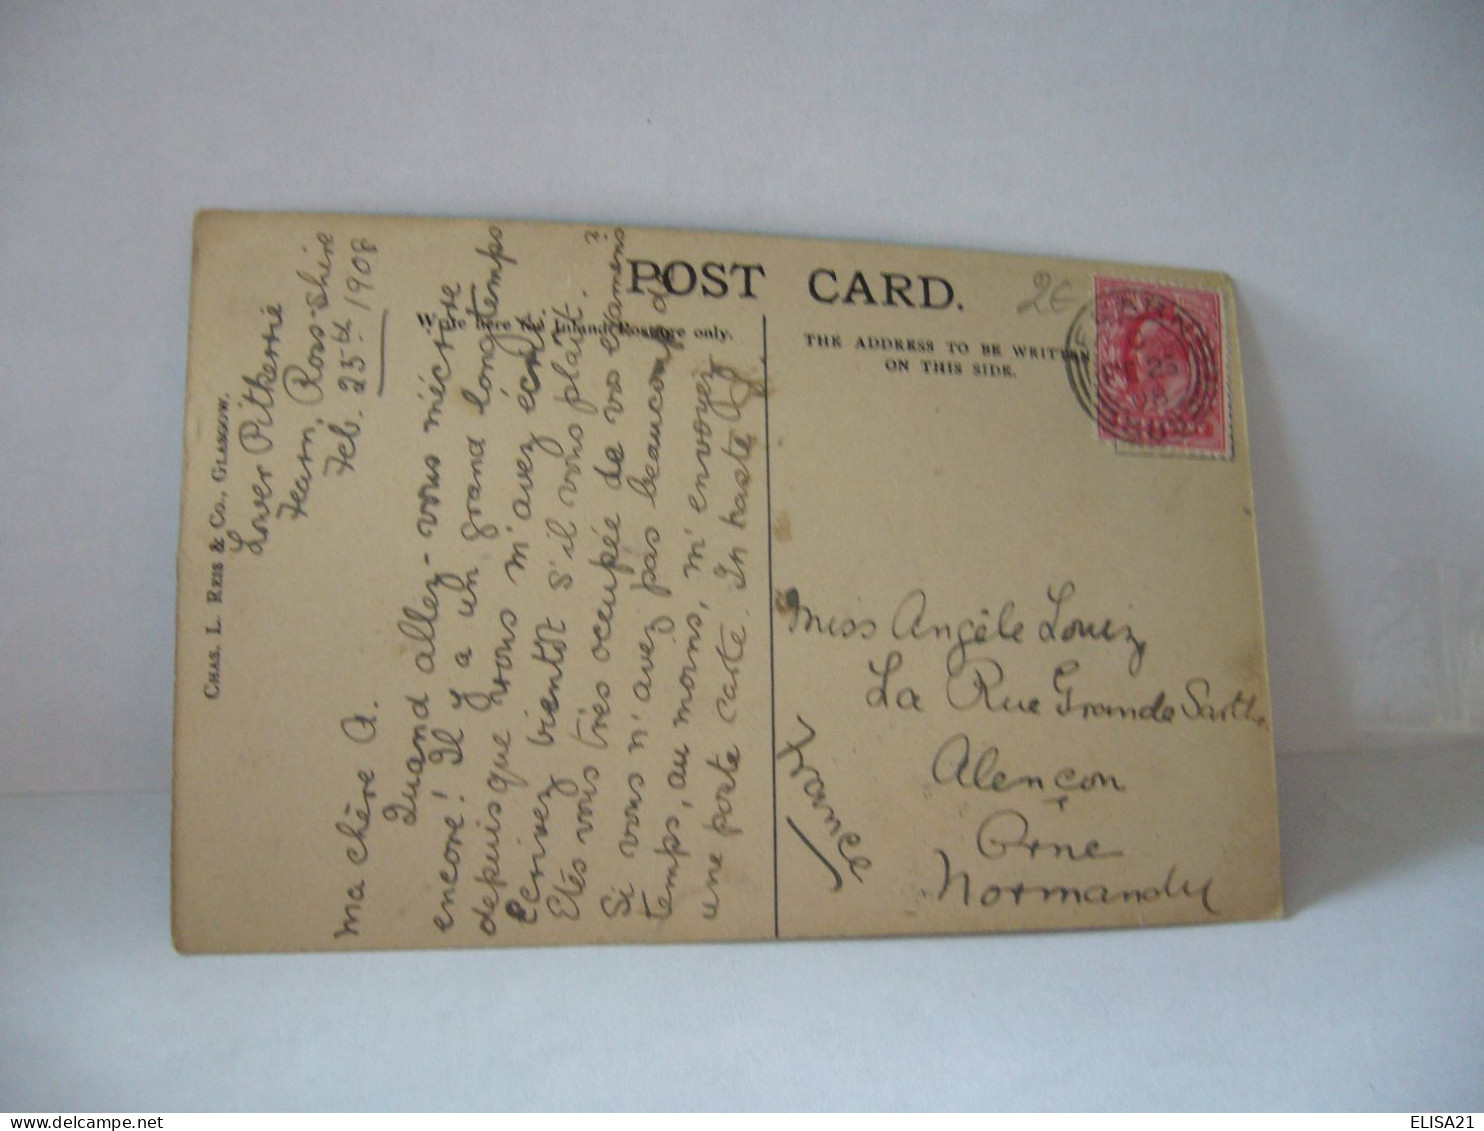 POST CARD.
Write here for Inland Postage only.
THE ADDRESS TO BE WRITTEN
ON THIS SIDE.
2€
CHAS. L. REIS & CO., GLASGOW.
Lower Pitkerrie
Fearn, Ross-Shire
Feb. 25th 1908
Ma chère A.
Quand allez-vous m'écrire
encore! Il y a un grand longtemps
depuis que vous m'avez écrit.
Ecrivez bientôt s'il vous plait.
Etés vous très occupée de vos examens?
Si vous n'avez pas beaucoup de
temps, au moins, m'envoyez
une poste carte. In haste J.
Miss Angèle Louiz,
La Rue Grande Sarthe
Alençon
Orne
Normandy
France
FEARN
25
08
ELISA21